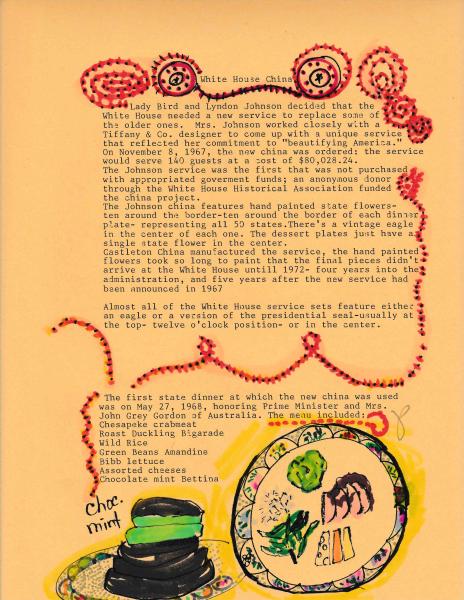 White House China
Lady Bird and Lyndon Johnson decided that the
White House needed a new service to replace some of
the older ones.  Mrs. Johnson worked closely with a
Tiffany & Co. designer to come up with a unique service
that reflected her commitment to "beautifying America."
On November 8, 1967, the new china was ordered: the service
would serve 140 guests at a cost of $80,028.24.
The Johnson service was the first that was not purchased
with appropriated goverment funds; an anonymous donor
through the White House Historical Association funded
the china project.
The Johnson china features hand painted state flowers-
ten around the border-ten around the border of each dinner
plate- representing all 50 states.There's a vintage eagle
in the center of each one. The dessert plates just have a
single state flower in the center.
Castleton China manufactured the service, the hand painted
flowers took so long to paint that the final pieces didn't
arrive at the White House untill 1972- four years into the
administration, and five years after the new service had
been announced in 1967
Almost all of the White House service sets feature either
an eagle or a version of the presidential seal-usually at
the top- twelve o'clock position- or in the center.
The first state dinner at which the new china was used
was on May 27, 1968, honoring Prime Minister and Mrs.
John Grey Gordon of Australia. The menu included:
Chesapeke crabmeat
Roast Duckling Bigarade
Wild Rice
Green Beans Amandine
Bibb lettuce
Assorted cheeses
Chocolate mint Bettina
choc.
mint